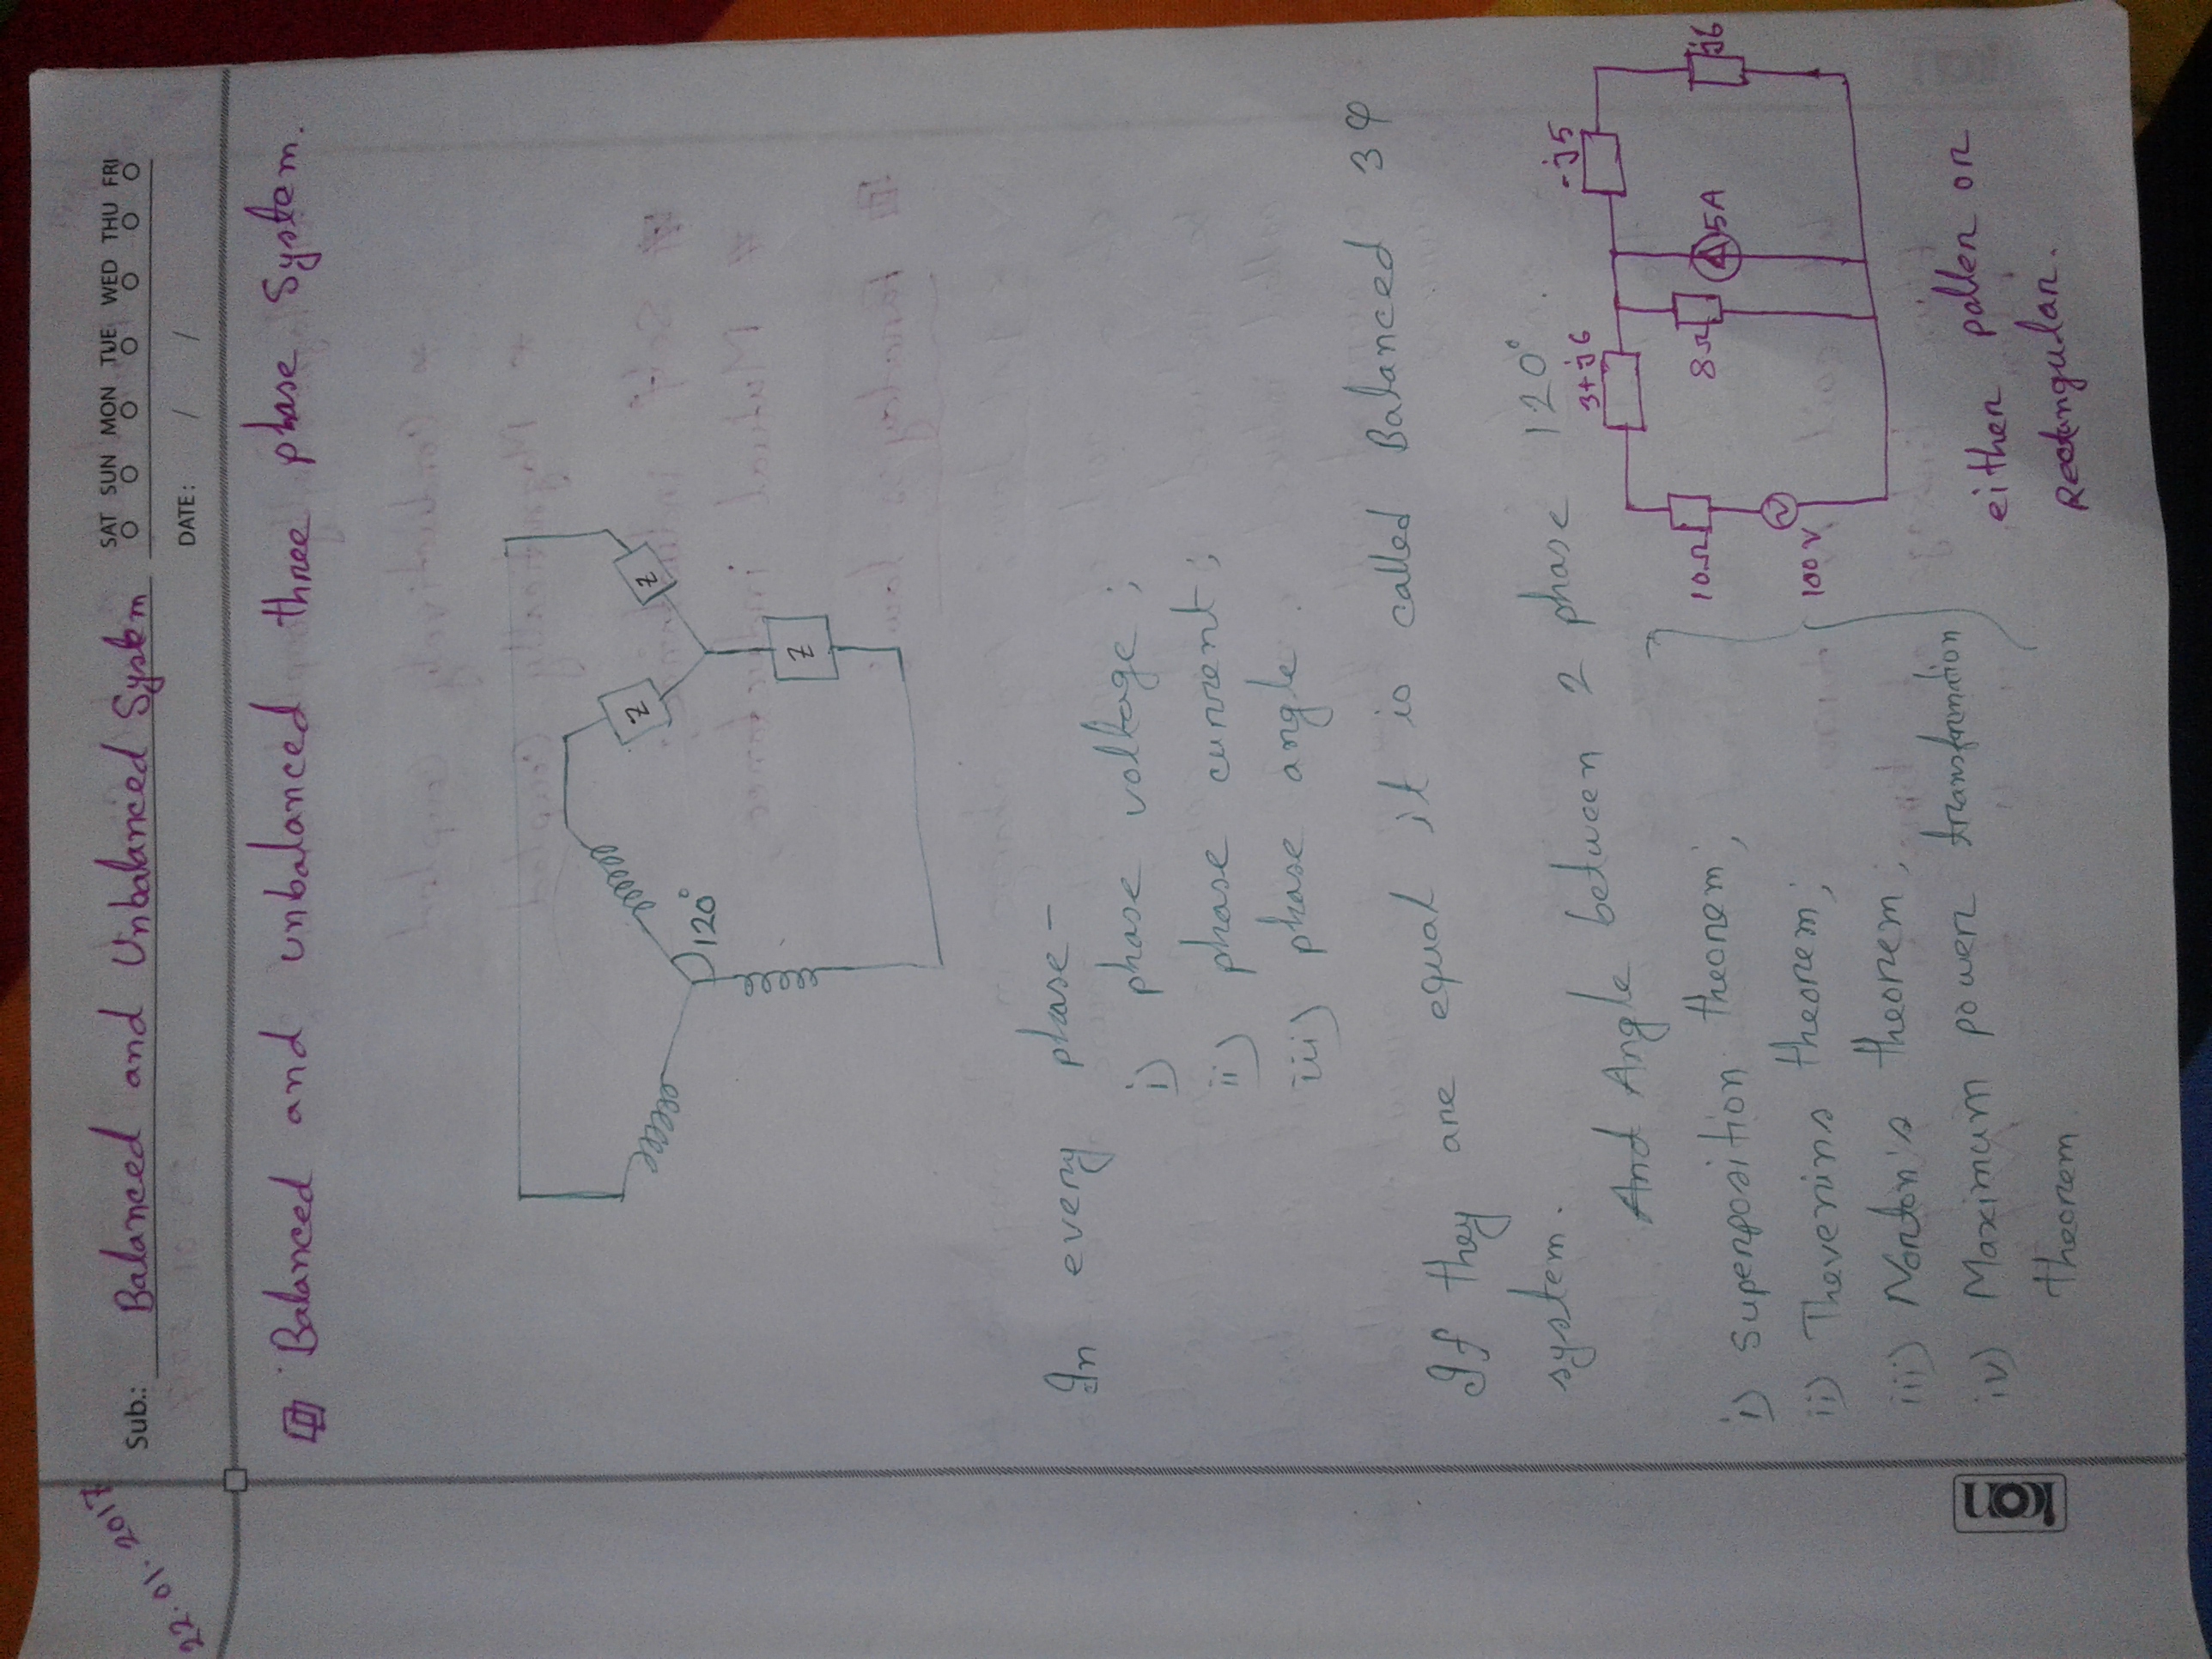 22.01.2017
Sub.: Balanced and Unbalanced System
SAT SUN MON TUE WED THU FRI
DATE: / /
Balanced and unbalanced three phase System.
Z
Z
120°
Z
In every phase-
i) phase voltage;
ii) phase current;
iii) phase angle.
If they are equal it is called Balanced 3φ
system.
And Angle between 2 phase 120°.
i) Superposition theorem;
ii) Thevenins theorem;
iii) Norton's theorem;
iv) Maximum power transformation
theorem.
3+j6
-j5
10Ω
8Ω
5A
j6
100V
either poller or
Rectangular.
icon